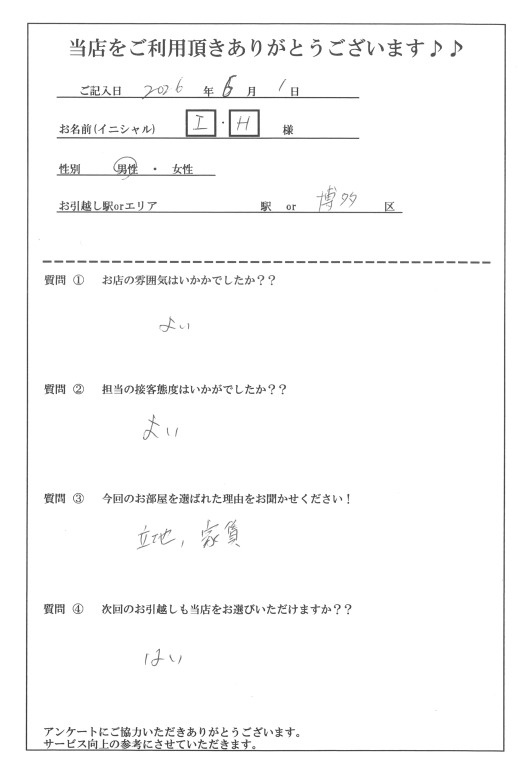 当店をご利用頂きありがとうございます♪♪
ご記入日 2026 年 6 月 1 日
お名前(イニシャル) I ・ H 様
性別 男性 ・ 女性
お引越し駅orエリア 駅 or 博多 区
質問 ① お店の雰囲気はいかかでしたか??
よい
質問 ② 担当の接客態度はいかがでしたか??
よい
質問 ③ 今回のお部屋を選ばれた理由をお聞かせください!
立地, 家賃
質問 ④ 次回のお引越しも当店をお選びいただけますか??
はい
アンケートにご協力いただきありがとうございます。
サービス向上の参考にさせていただきます。